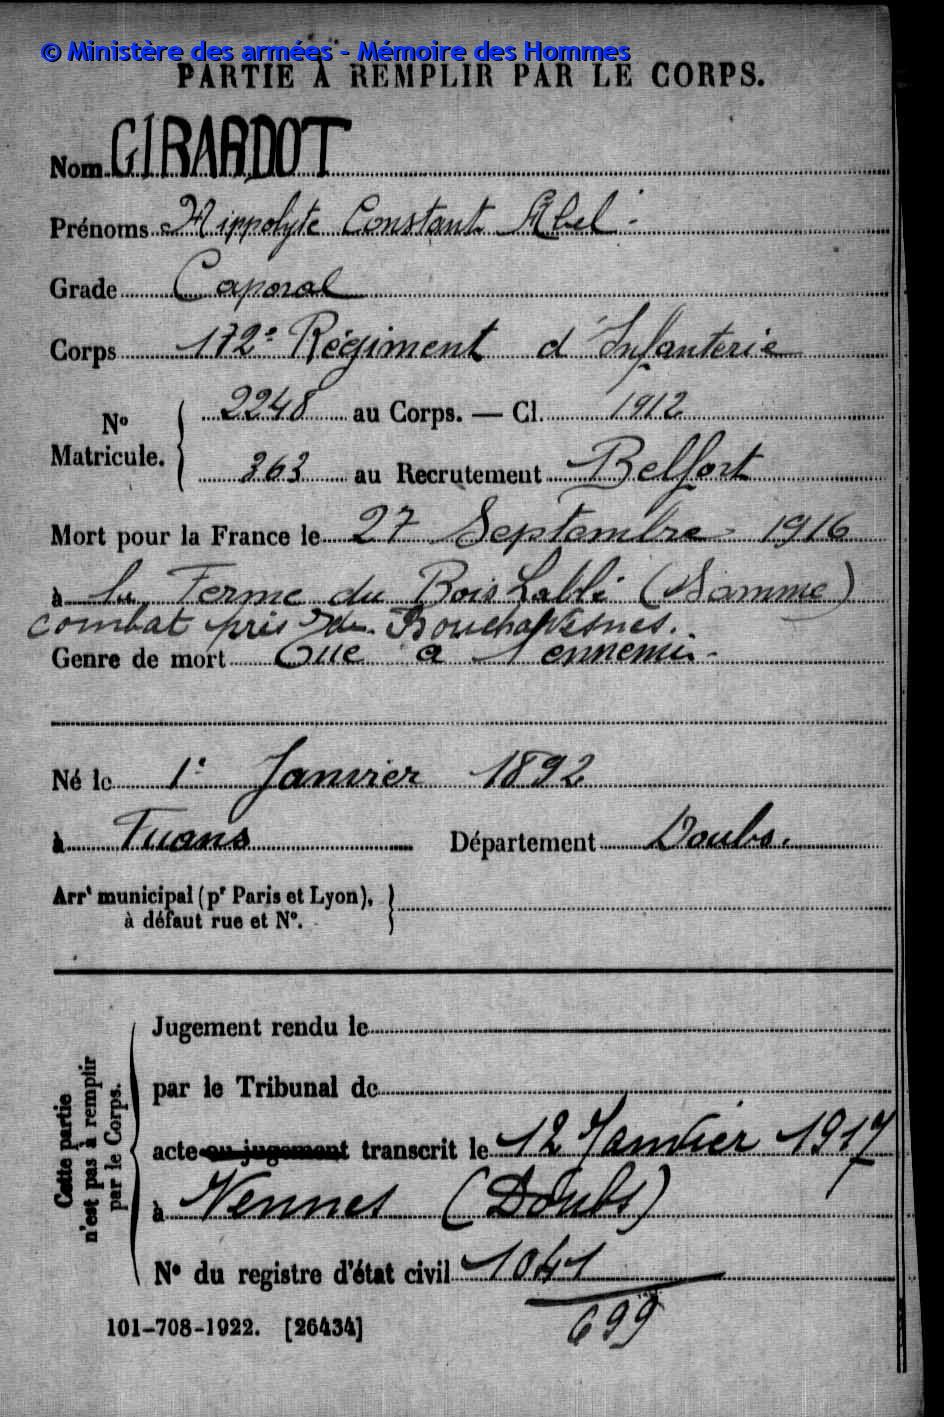 © Ministère des armées - Mémoire des Hommes
PARTIE À REMPLIR PAR LE CORPS.
Nom GIRARDOT
Prénoms Hippolyte Constant Abel
Grade Caporal
Corps 172e Régiment d'Infanterie
No Matricule. { 2248 au Corps. — Cl. 1912
363 au Recrutement Belfort
Mort pour la France le 27 Septembre 1916
à la Ferme du Bois Labbé (Somme)
combat près de Bouchavesnes.
Genre de mort Tué à l'ennemi
Né le 1er Janvier 1892
à Fuans Département Doubs.
Arrt municipal (pr Paris et Lyon), }
à défaut rue et No.
Cette partie n'est pas à remplir par le Corps.
Jugement rendu le
par le Tribunal de
acte ou jugement transcrit le 12 Janvier 1917
à Vennes (Doubs)
No du registre d'état civil 1041
699
101-708-1922. [26434]